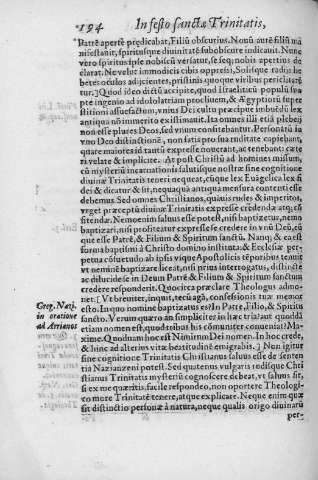 194 In festo sanctæ Trinitatis,
Patrē apertè prędicabat, Filiū obscurius. Nouū autē filiū ma
nifestauit, spiritusque diuinitatē subobscurè indicauit. Nunc
verò spiritus ipse nobiscū versatur, se seq; nobis apertius de
clarat. Ne velut immodicis cibis oppressi, Solisque radiis he
betes oculos adiicientes, quod nobis supra vires
titur.] Quod ideo dictū accipite, quòd Israeliticū populū sæ
pe ingenio ad idololatriam procliuem, & Ægyptiorū super
stitioni assuefactum, vnius Dei cultu præcipue imbuēdū lex
antiqua nō immeritò existimauit. Ita omnes illi etiā plebeij
non esse plures Deos, sed vnum confitebantur. Personarū in
vno Deo distinctionē, non satis pro sua ruditate capiebant,
quare maiores id tantū expressè nouerant, ac tenebantō cæte
ri velatè & implicitè. At post Christū ad homines missum,
cū mysteriū incarnationis salutisque nostræ sine cognitione
diuinæ Trinitatis teneri nequeat, cūque lex Euāgelica lex fi
dei & dicatur & sit, nequaquā antiqua mensura contenti esse
debemus. Sed omnes Christianos, quāuis rudes & imperitos,
vrget præceptū diuinæ Trinitatis expressè credendæ atq; cō
fitendæ. Nemo enim saluus esse potest, nisi baptizetur, nemo
baptizari, nisi profiteatur expressè se credere in vnū Deū, cū
que esse Patrē, & Filium & Spiritum sanctū. Nanq; & ea est
forma baptismi à Christo domino instituta: & Ecclesiæ per
petua cōsuetudo ab ipsis vsque Apostolicis tēporibus tenuit
vt nemine baptizare liceat, nisi prius interrogatus, distinctè
ac dilucidè se in Deum Patrē & Filium & Spiritum sanctum
credere responderit. Quocirca præclarè Theologus admo-
net: [Vt breuiter, inquit, tecū agā, confessionis tuæ memor
esto. In quo nomine baptizatus es? in Patre, Filio, & Spiritu
Greg. Nazi.
in oratione
ad Arrianos
sancto. An verum quanto in simplicitate
etiam nomen est, quod tribus his comuniter conueniat? Ma
xime. Quodnam hoc est? Nimirum Dei nomen. In hoc crede,
& hinc ad alterius vitæ beatitudinē emigrabis.] Non igitur
sine cognitione Trinitatis Christianus saluus esse de senten
tia Nazianzeni potest. Sed quatenus vulgaris rudisque Chri
stianus Trinitatis mysteriū cognoscere debeat, vt saluus sit,
si ex me quæratis, facilè respondeo, non oportere Theologi-
co more Trinitatē tenere, atque explicare. Neque enim quæ
sit distinctio personæ à natura, neque qualis origo diuinarū
per-